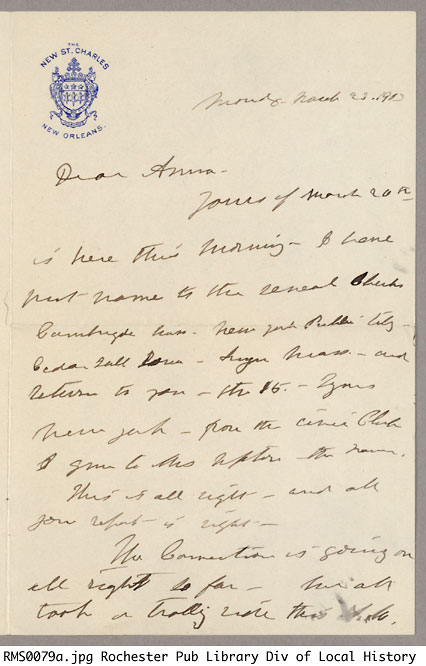 THE
NEW ST. CHARLES
NEW ORLEANS.
March 23. 1903
Dear Anna -
Yours of March 20th
is here this morning - I have
put name to the several Checks
Cambridge Mass. New York Public City -
Cedar Fall Iowa - Lynn Mass. - and
return to you - the 15. - Lyons
New York - from the civic Club
I give to Mrs Upton the name.
This is all right - and all
your report is right -
The Convention is going on
all right so far - We all
took a trolly ride this
RMS0079a.jpg Rochester Pub Library Div of Local History